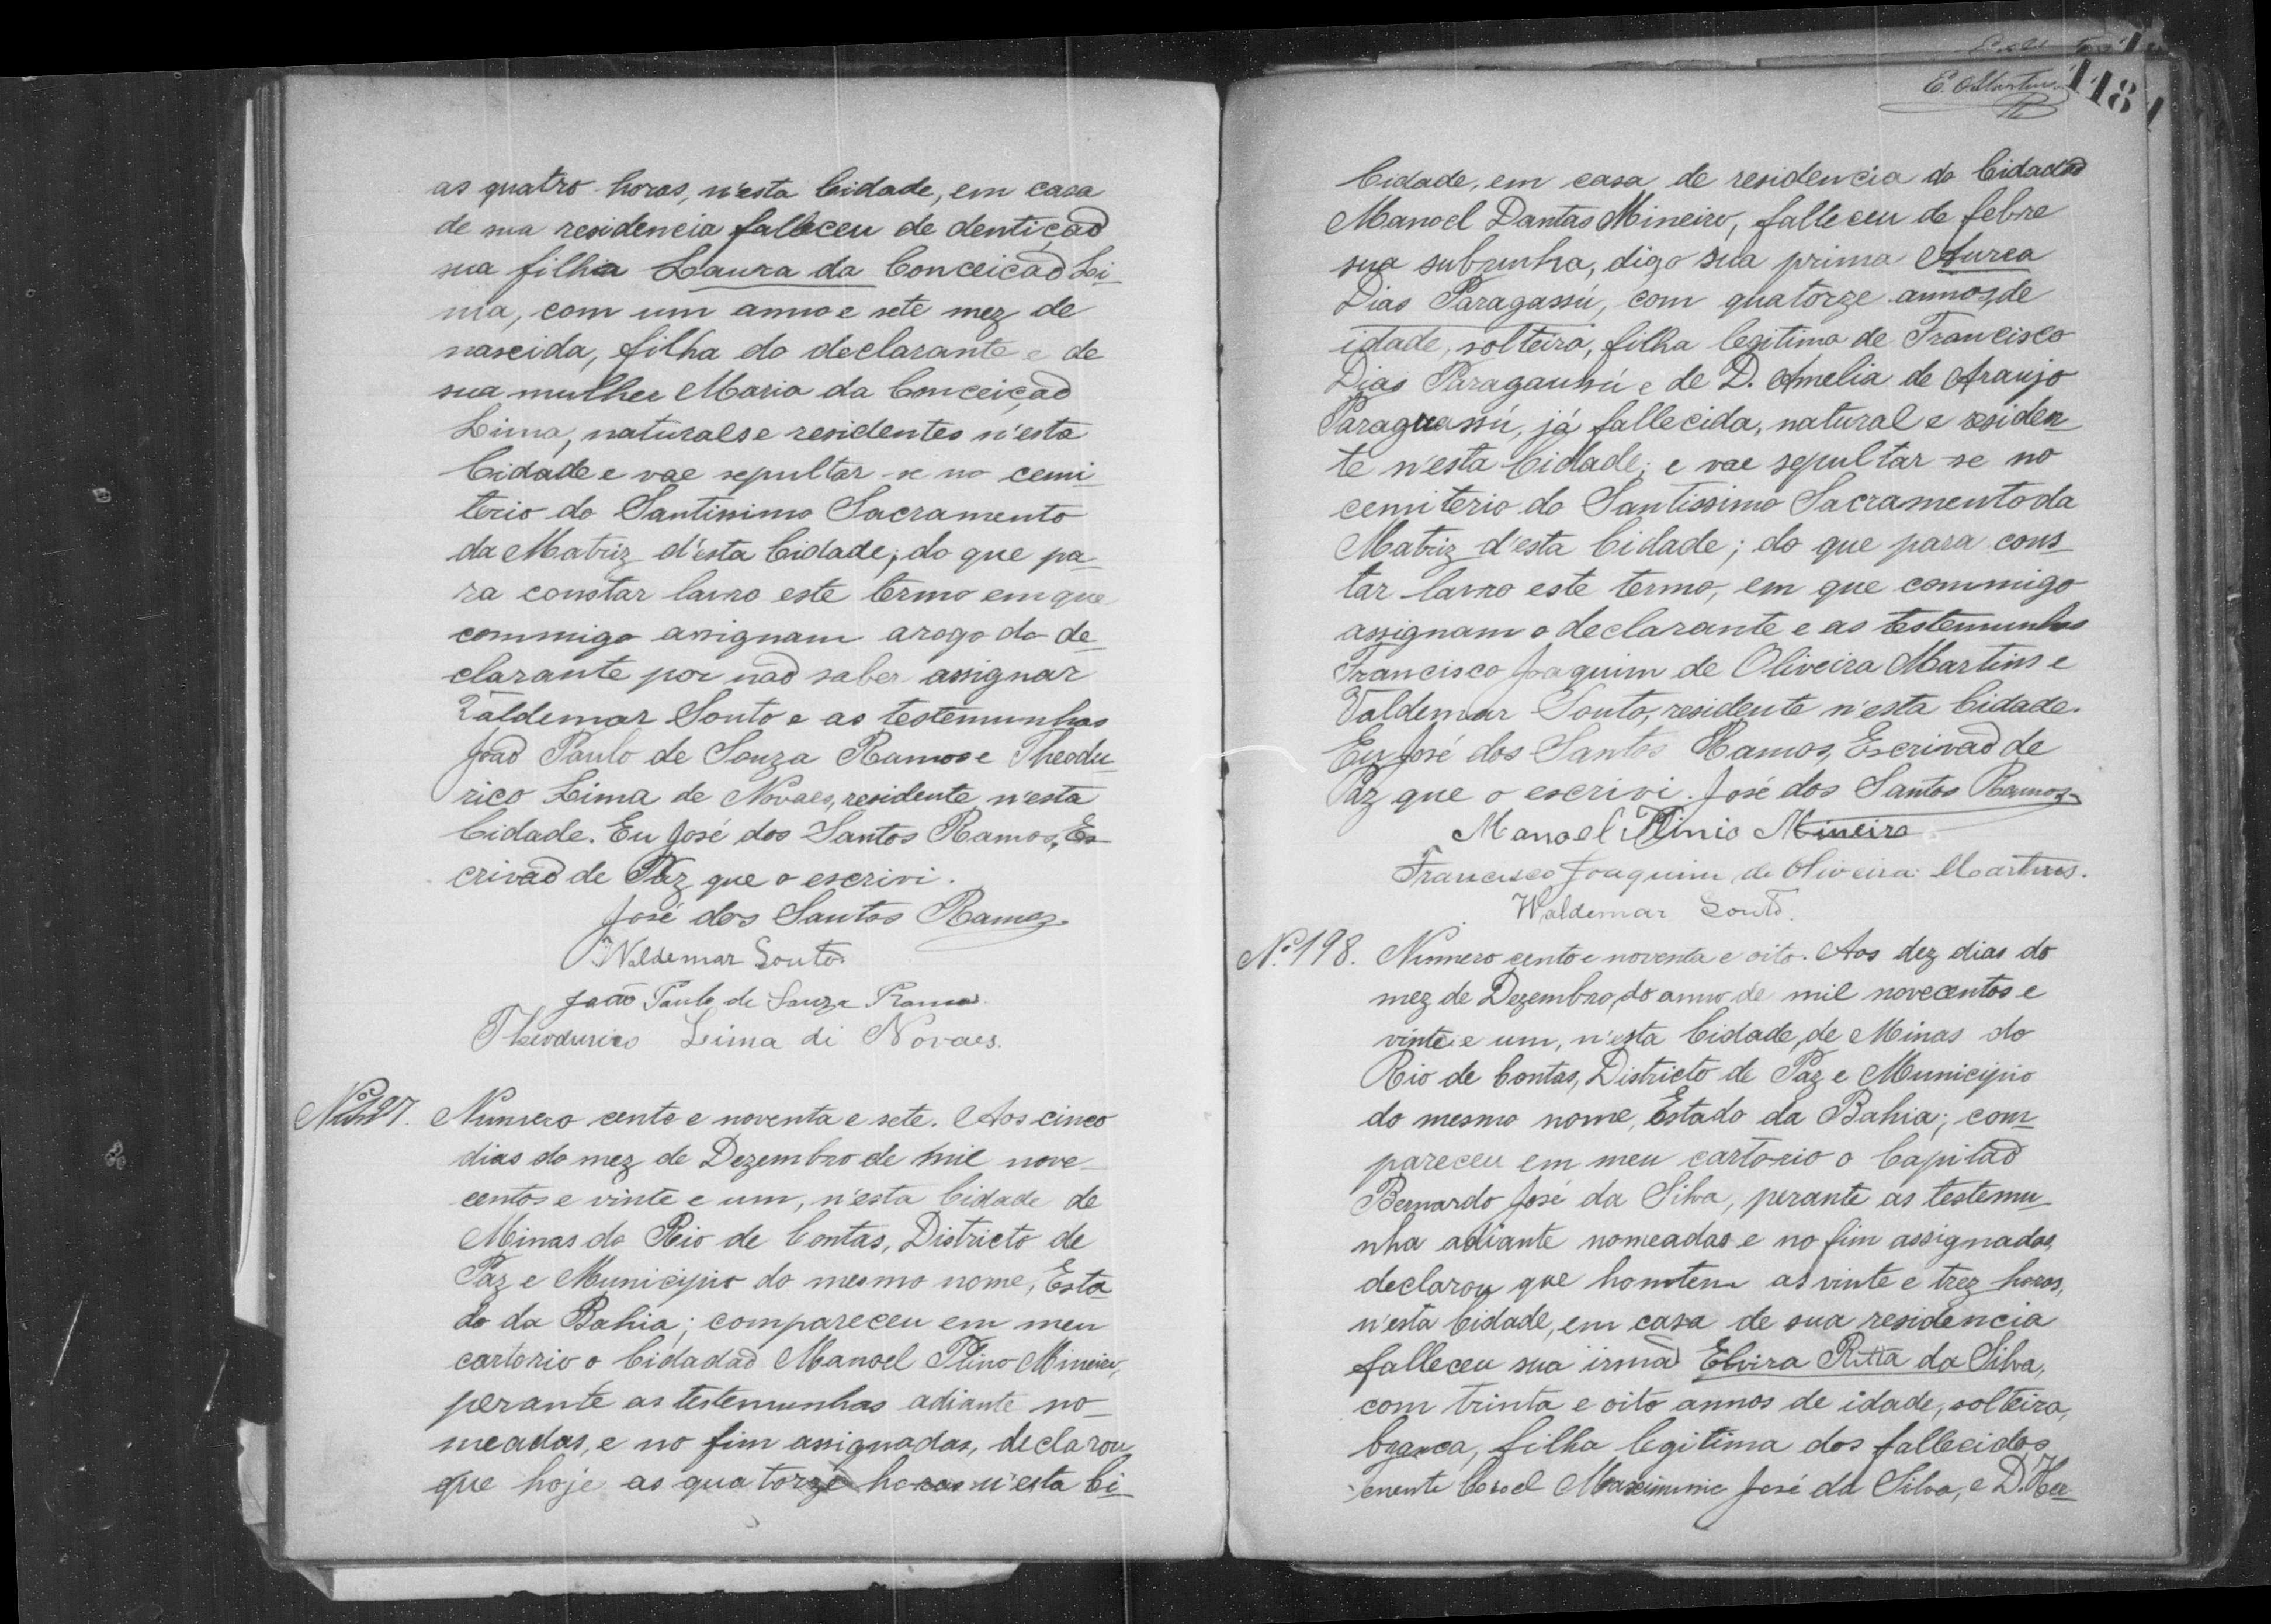 as quatro horas, n'esta Cidade, em casa
de sua residencia falleceu de dentição
sua filha Laura da Conceição Li-
ma, com um anno e sete mez de
nascida, filha do declarante e de
sua mulher Maria da Conceição
Lima, naturaes e residentes n'esta
Cidade e vae sepultar-se no cemi-
terio do Santissimo Sacramento
da Matriz d'esta Cidade; do que pa-
ra constar lavro este termo em que
commigo assignam arogo do de-
clarante por não saber assignar
Valdemar Souto e as testemunhas
João Paulo de Souza Ramos e Theodu-
rico Lima de Novaes, residente n'esta
Cidade. Eu José dos Santos Ramos, Es-
crivão de Paz que o escrivi.
José dos Santos Ramos
Waldemar Souto
João Paulo de Souza Ramos
Theodurico Lima di Novaes.
Nº 197. Numero cento e noventa e sete. Aos cinco
dias do mez de Dezembro de mil nove-
centos e vinte e um, n'esta Cidade de
Minas do Rio de Contas, Districto de
Paz e Municipio do mesmo nome, Esta-
do da Bahia; compareceu em meu
cartorio o Cidadão Manoel Plino Mineiro,
perante as testemunhas adiante no-
meadas, e no fim assignadas, declarou
que hoje as quatorze horas n'esta Ci-
E. Martins
118
Cidade, em casa de residencia do Cidadão
Manoel Dantas Mineiro, falleceu de febre
sua subrinha, digo sua prima Aurea
Dias Paragassú, com quatorze annos, de
idade, solteira, filha legitima de Francisco
Dias Paraguassú e de D. Amelia de Araujo
Paraguassú, já fallecida, natural e residen-
te n'esta Cidade; e vae sepultar-se no
cemiterio do Santissimo Sacramento da
Matriz d'esta Cidade; do que para cons-
tar lavro este termo, em que commigo
assignam o declarante e as testemunhas
Francisco Joaquim de Oliveira Martins e
Valdemar Souto, residente n'esta Cidade.
Eu José dos Santos Ramos, Escrivão de
Paz que o escrivi. José dos Santos Ramos
Manoel Plinio Mineiro
Francisco Joaquim de Oliveira Martins.
Waldemar Souto.
Nº 198. Numero cento e noventa e oito. Aos dez dias do
mez de Dezembro, do anno de mil novecentos e
vinte e um, n'esta Cidade, de Minas do
Rio de Contas, Districto de Paz e Municipio
do mesmo nome, Estado da Bahia; com-
pareceu em meu cartorio o Capitão
Bernardo José da Silva, perante as testemu-
nha adiante nomeadas e no fim assignadas,
declarou que homtem as vinte e trez horas,
n'esta Cidade, em casa de sua residencia
falleceu sua irmã Elvira Ritta da Silva,
com trinta e oito annos de idade, solteira,
branca, filha legitima dos fallecidos
enente Coroel Maximinio José da Silva, e D. Her-